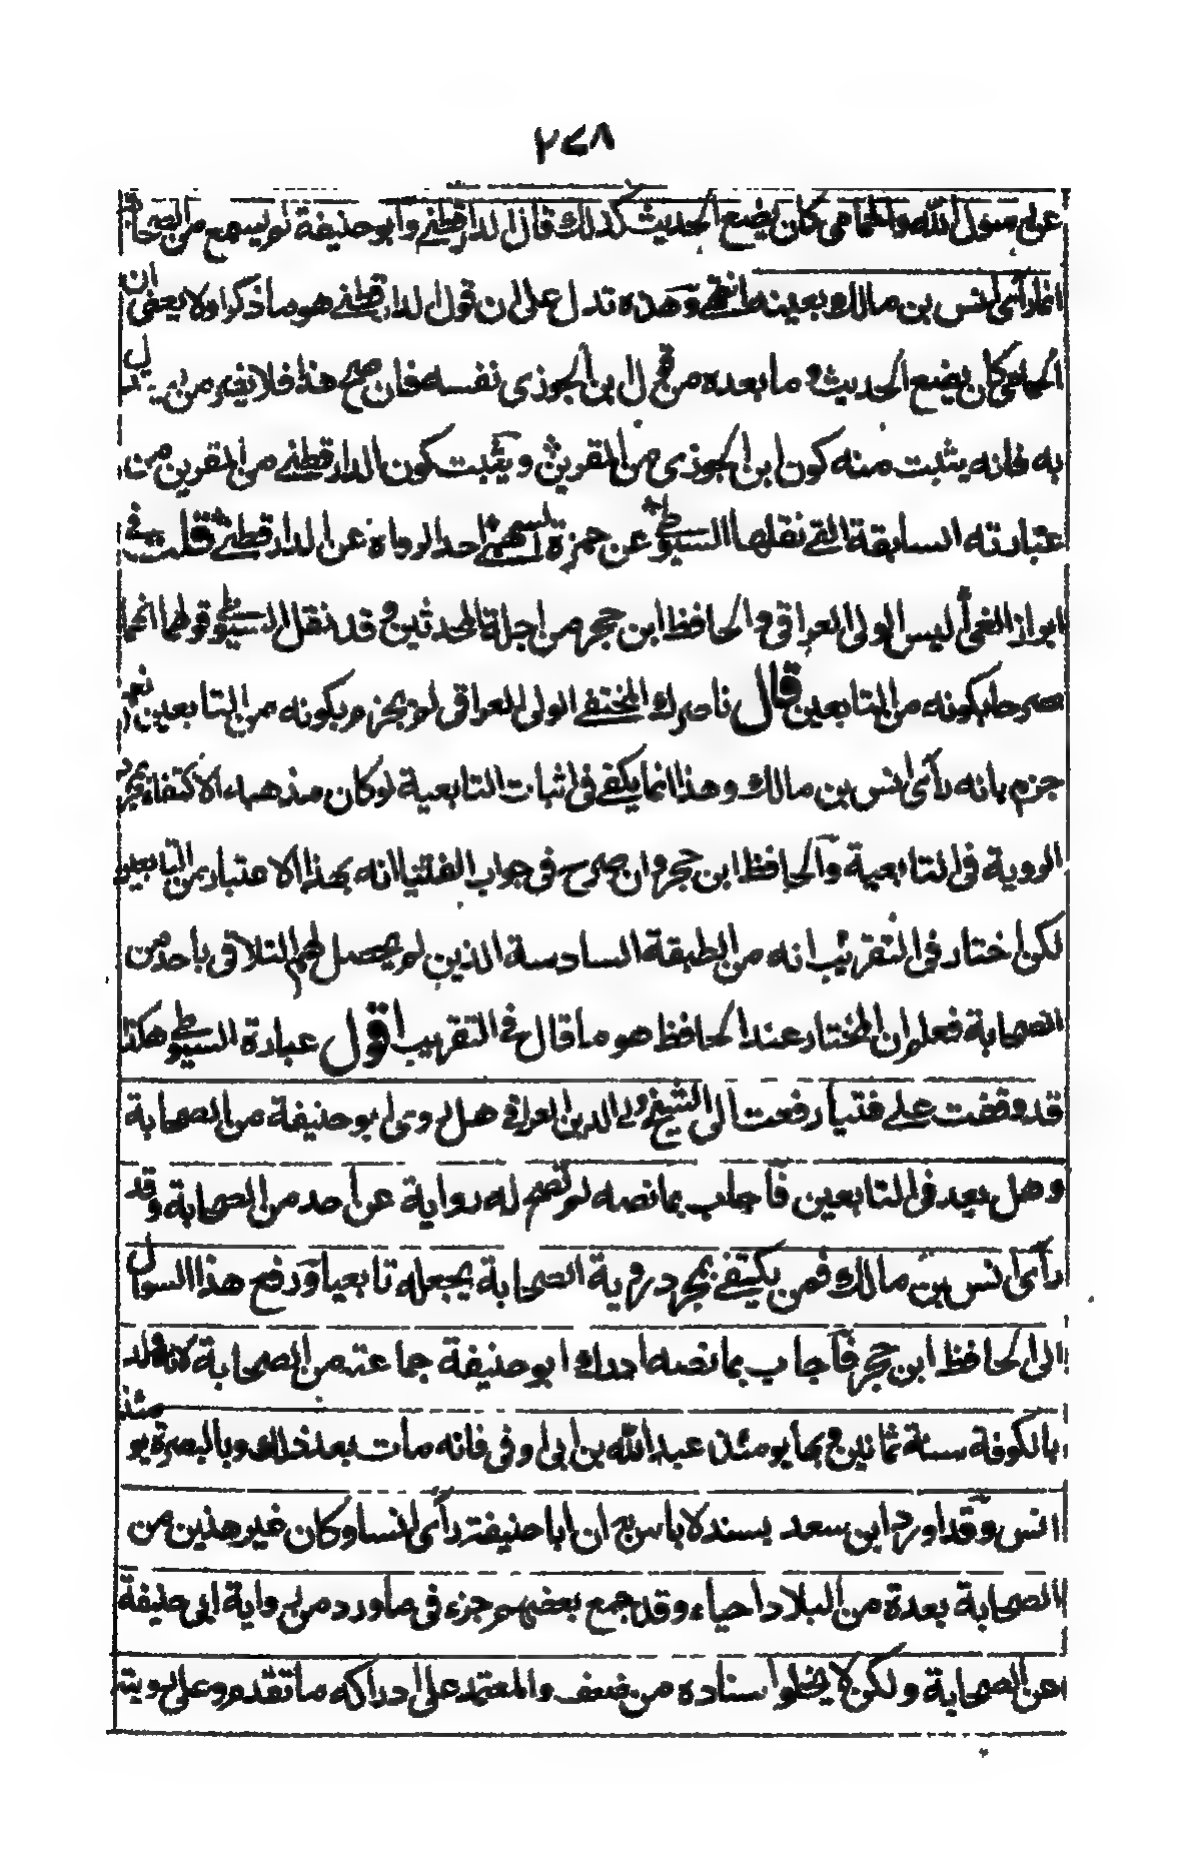 ٢٧٨
على رسول الله والحمامى كان يضع الحديث كذلك قال الدارقطني وابو حنيفة لم يسمع من الصحابة
انما رأى انس بن مالك بعينه انتهى وهذه تدل على ان قول الدارقطني هو ما ذكرا ولا يعفى ان
الحمامى كان يضع الحديث وما بعده من قول ابن الجوزى نفسه فان صح هذا فلا يضر من يريد
به فانه يثبت منه كون ابن الجوزى من المقرين ويثبت كون الدارقطني من المقرين من
عبارته السابقة التى نقلها السيوطي عن حمزة السهمي احد الرواة عن الدارقطني قلت فى
ابراز الغى أليس الولى العراقى والحافظ ابن حجر من اجلة المحدثين وقد نقل السيوطي قولهما انهما
صرحا بكونه من التابعين قال ناصرك المختفى الولى العراقى لم يجزم بكونه من التابعين نعم
جزم بانه رأى انس بن مالك وهذا انما يكفى فى اثبات التابعية لو كان مذهبه الاكتفاء بمجرد
الروية فى التابعية والحافظ ابن حجر وان صرح فى جواب الفتيا انه بهذا الاعتبار من التابعين
لكن اختار فى التقريب انه من الطبقة السادسة الذين لم يحصل لهم التلاقى باحد من
الصحابة فعلم ان المختار عند الحافظ هو ما قال فى التقريب اقول عبارة السيوطي هكذا
قد وقفت على فتيا رفعت الى الشيخ ولى الدين العراقى هل روى ابو حنيفة من الصحابة
وهل يعد فى التابعين فأجاب بما نصه لم تصح له رواية عن أحد من الصحابة وقد
رأى انس بن مالك فمن يكتفى بمجرد روية الصحابة يجعله تابعيا ورفع هذا السوال
الى الحافظ ابن حجر فأجاب بما نصه ادرك ابو حنيفة جماعة من الصحابة لانه ولد
بالكوفة سنة ثمانين وبها يومئذ عبد الله بن ابى اوفى فانه مات بعد ذلك وبالبصرة يومئذ
انس وقد اورد ابن سعد بسند لا باس به ان ابا حنيفة رأى انسا وكان غير هذين من
الصحابة بعدة من البلاد احياء وقد جمع بعضهم جزء فى ما ورد من رواية ابى حنيفة
عن الصحابة ولكن لا يخلو اسناده من ضعف والمعتمد على ادراكه ما تقدم وعلى رويته